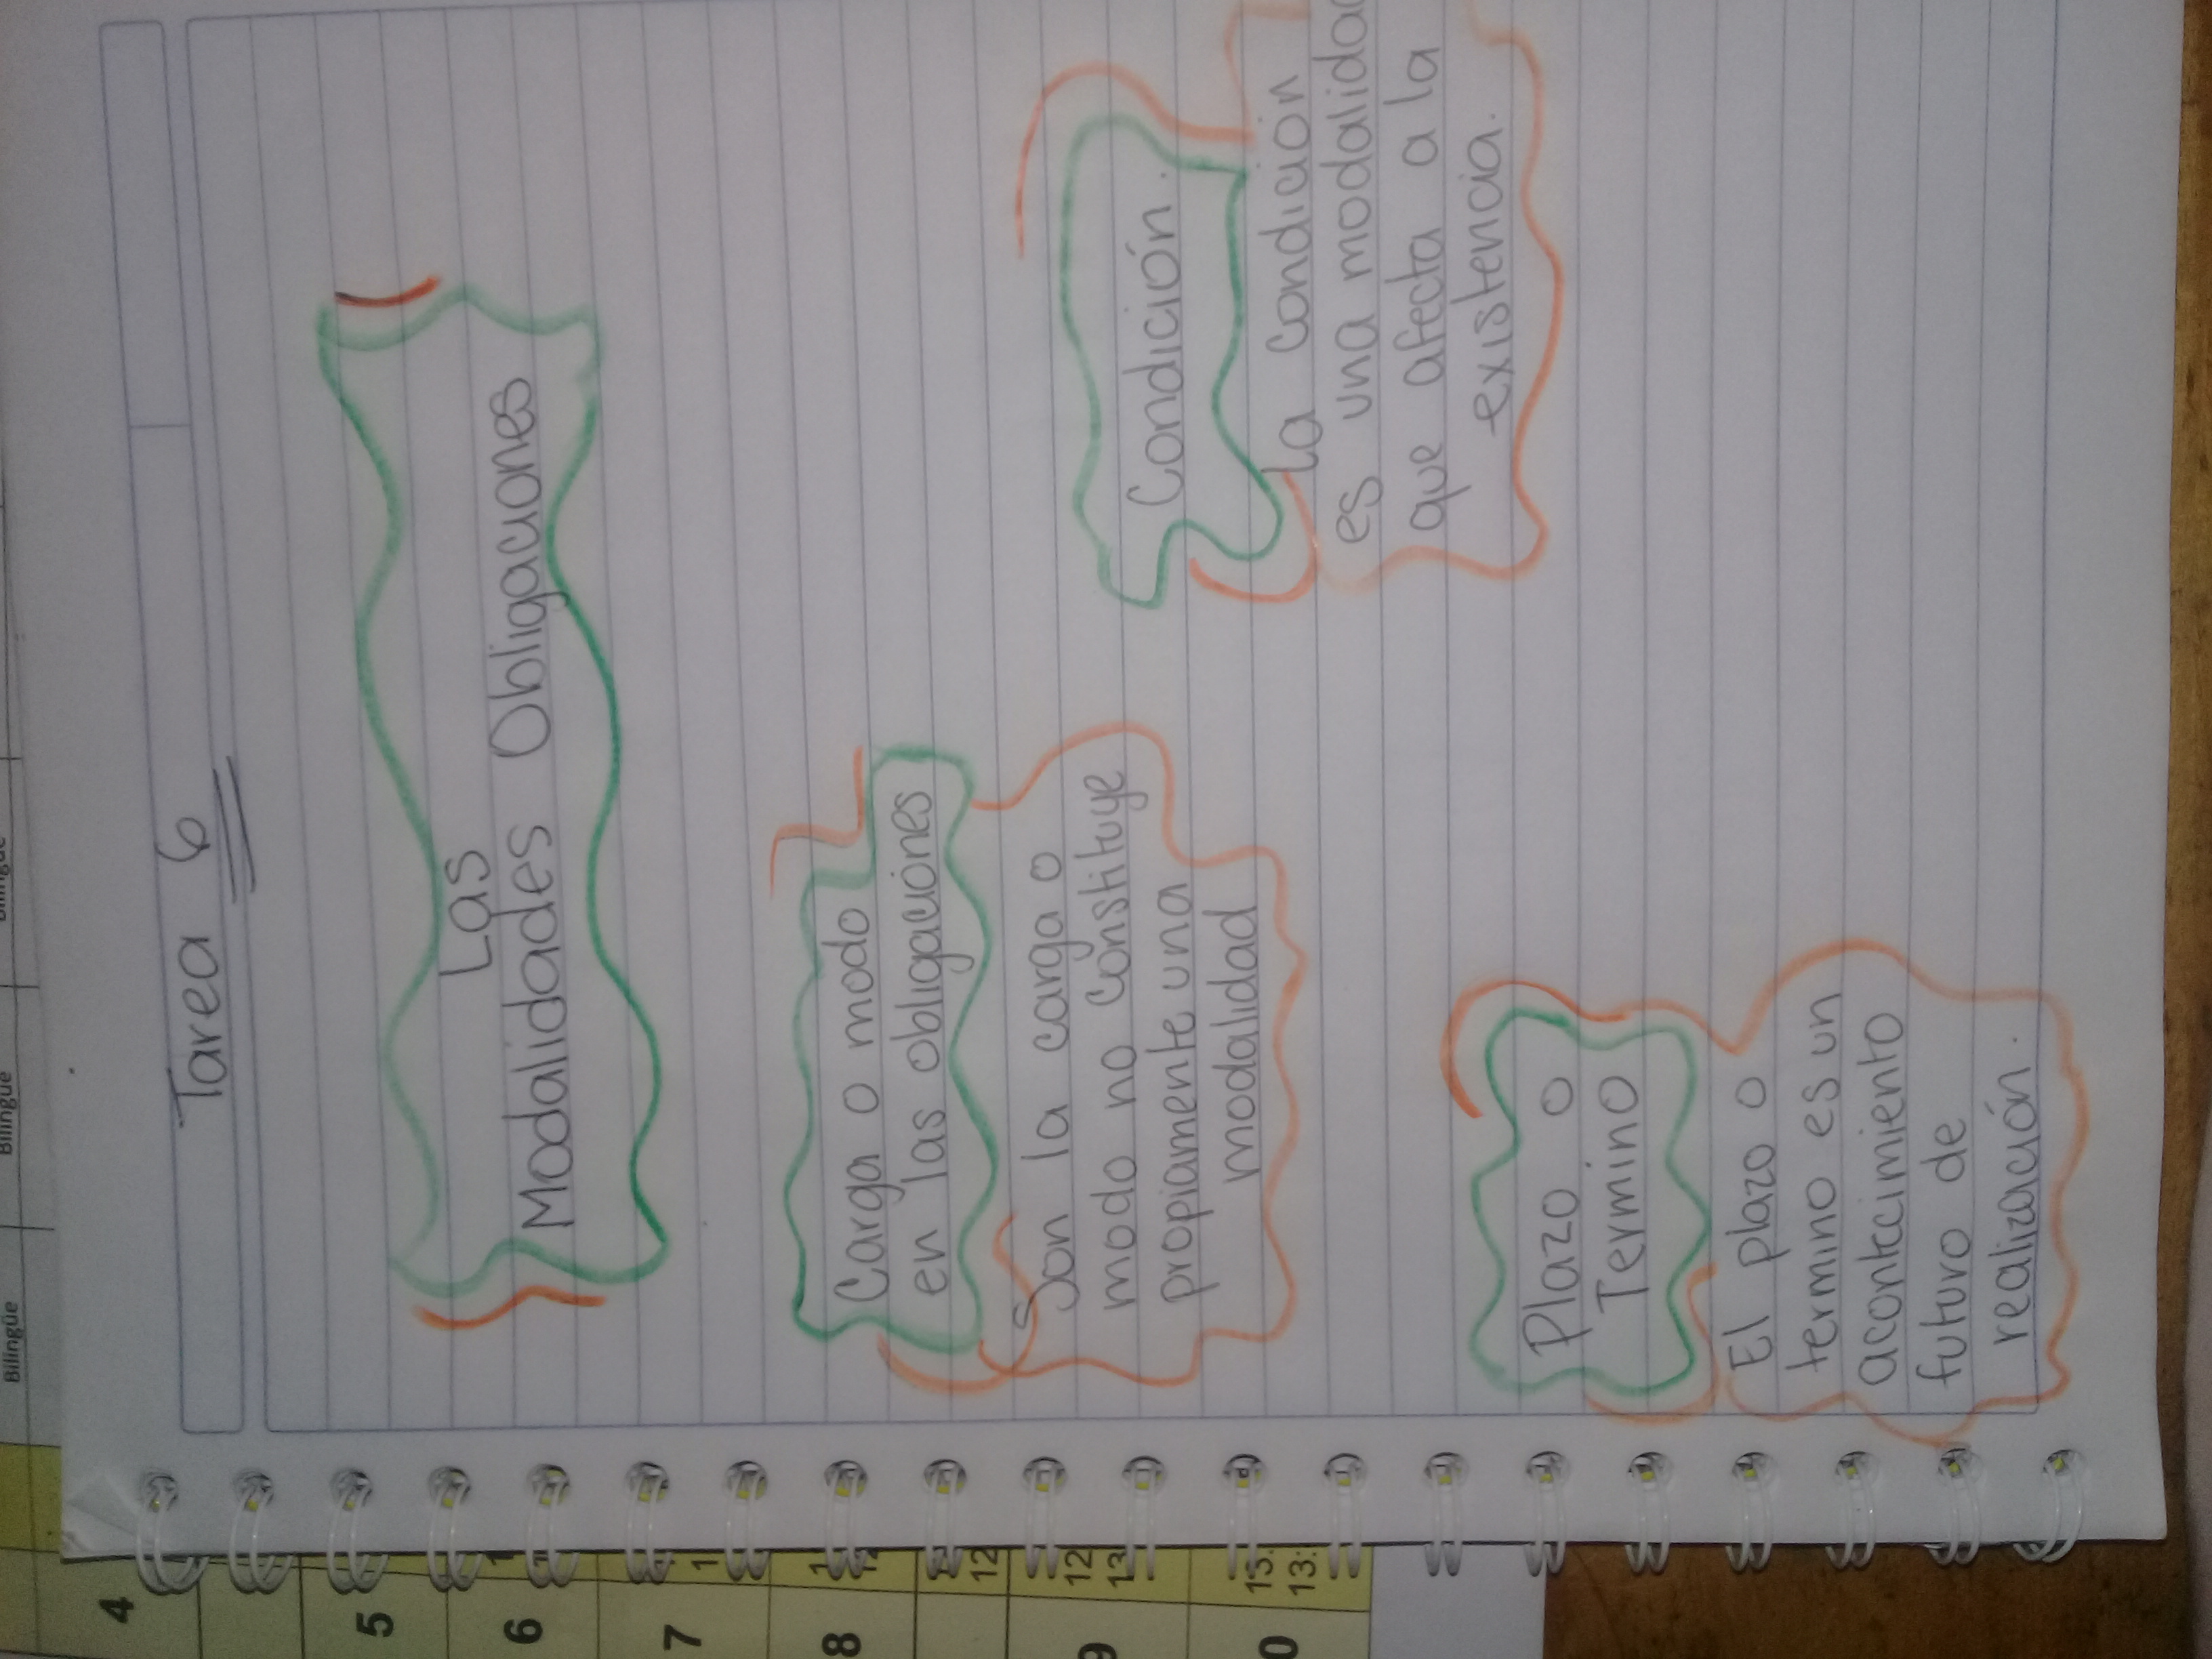 Tarea 6
Las
Modalidades Obligaciones
Carga o modo
en las obligaciones
Son la carga o
modo no constituye
propiamente una
modalidad
Condición.
La condición
es una modalidad
que afecta a la
existencia.
Plazo o
Termino
El plazo o
termino es un
acontecimiento
futuro de
realización.
Bilingüe
Bilingüe
4
5
6
7
8
9
12
12
13
13:
0